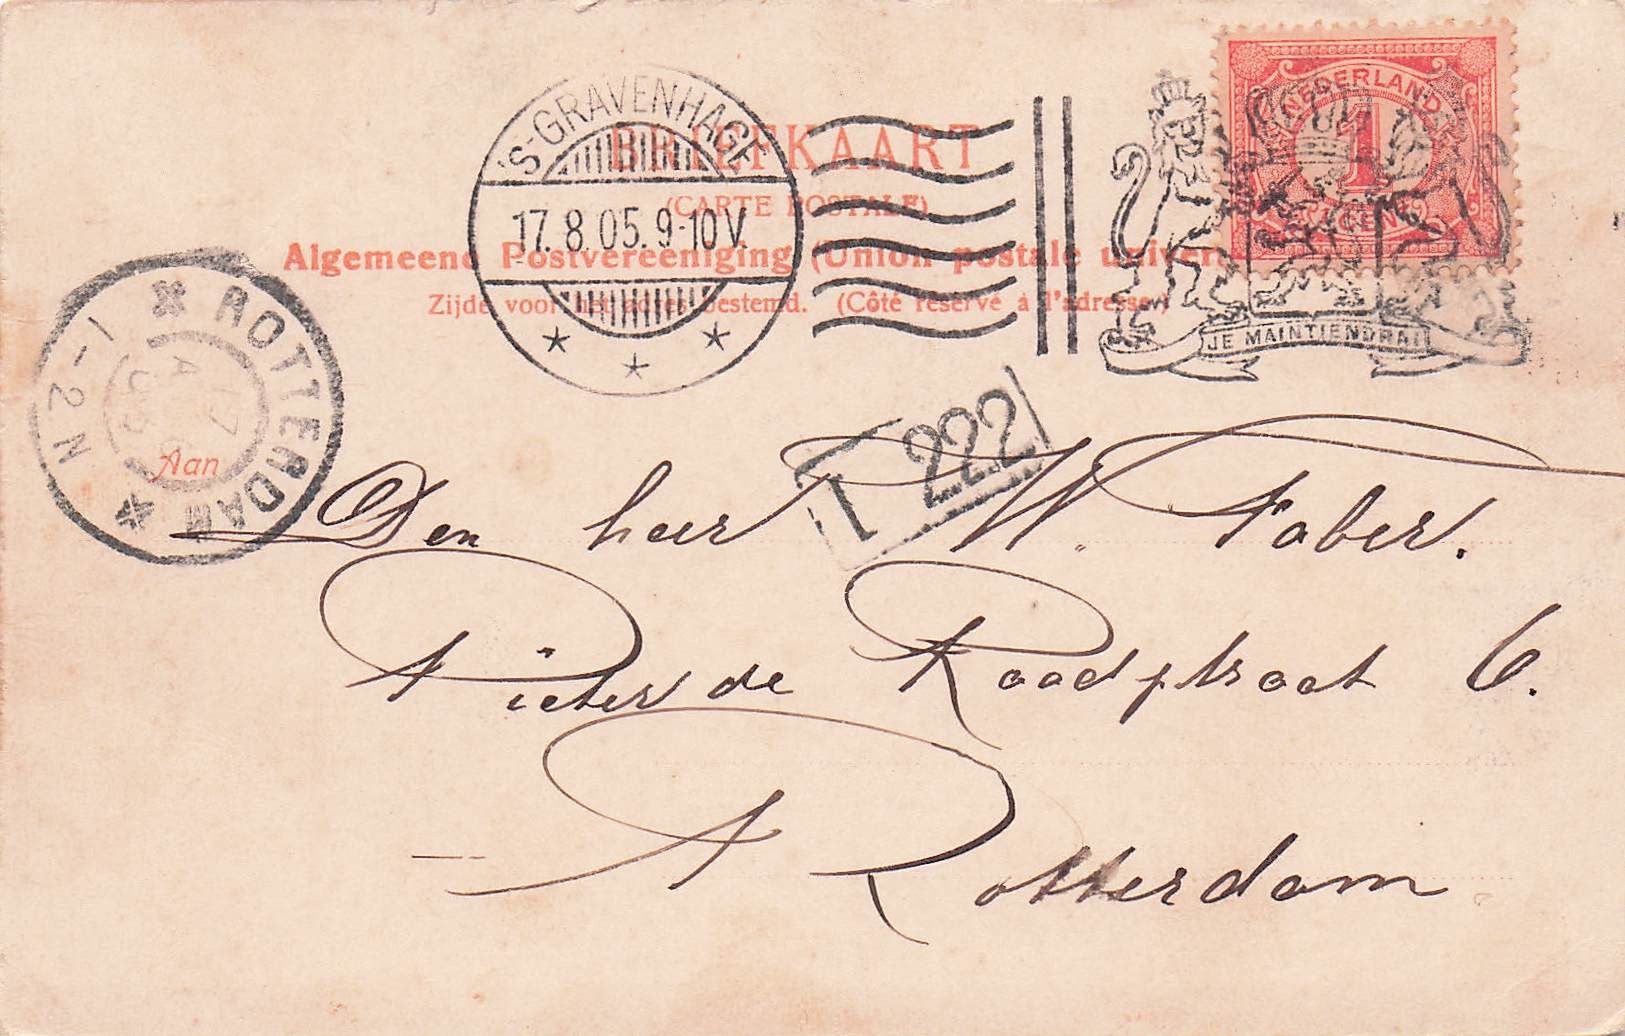 BRIEFKAART
(CARTE POSTALE)
Algemeene Postvereeniging (Union postale univers
Zijde voor het adres bestemd. (Côté réservé à l'adresse)
'S-GRAVENHAGE
17.8.05.9-10V.
NEDERLAND
1
CENT
JE MAINTIENDRAI
ROTTERDAM
1-2N
Aan
1 222
Den heer W. Faber.
Pieter de Raadtstraat 6.
Rotterdam